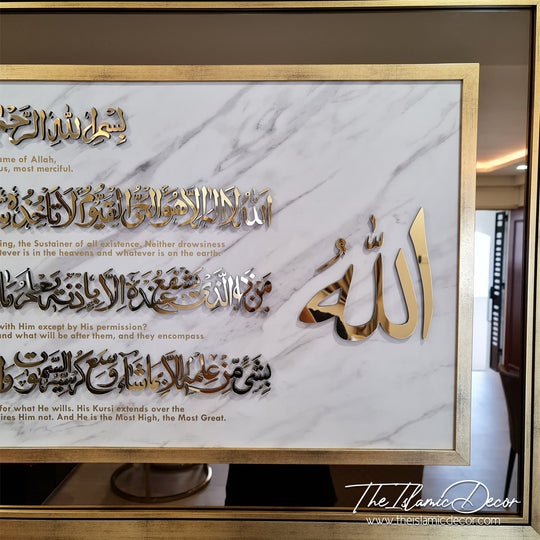 بسم الله الرحمن
ame of Allah,
us, most merciful.
الله لا إله إلا هو الحي القيوم لا تأخذه
الله
ing, the Sustainer of all existence. Neither drowsiness
tever is in the heavens and whatever is on the earth.
من ذا الذي يشفع عنده إلا بإذنه يعلم ما
with Him except by His permission?
and what will be after them, and they encompass
بشيء من علمه إلا بما شاء وسع كرسيه السموت
for what He wills. His Kursi extends over the
ires Him not. And He is the Most High, the Most Great.
The Islamic Decor
www.theislamicdecor.com